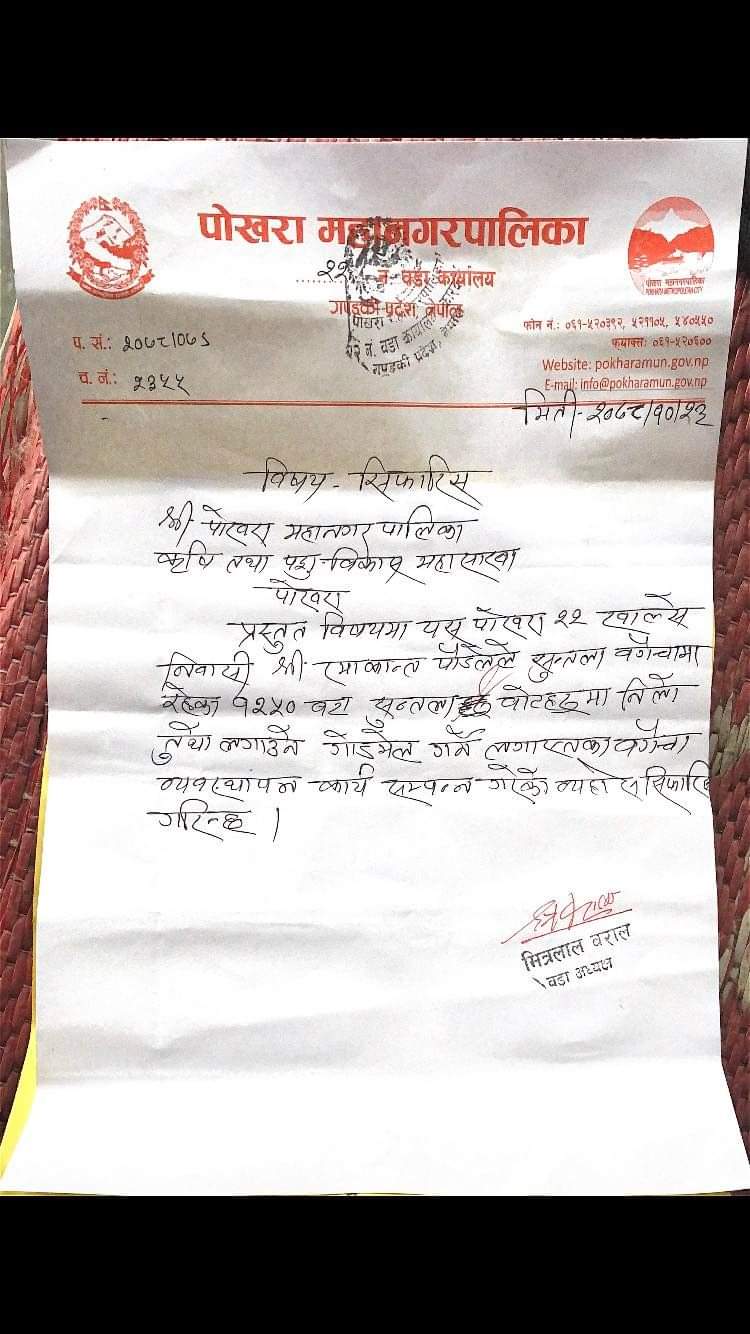 पोखरा महानगरपालिका
२२ नं. वडा कार्यालय
गण्डकी प्रदेश, नेपाल
पोखरा
२२ नं. वडा कार्यालय
गण्डकी प्रदेश, नेपाल
पोखरा महानगरपालिका
POKHARA METROPOLITAN CITY
प. सं.: २०७८/०७९
च. नं.: २३५५
फोन नं.: ०६१-५२०३९२, ५२११०५, ५४०५५०
फ्याक्सः ०६१-५२०६००
Website: pokharamun.gov.np
E-mail: info@pokharamun.gov.np
मिती-२०७८/१०/२३
विषय - सिफारिस
श्री पोखरा महानगरपालिका
कृषि तथा पशु विकास महाशाखा
पोखरा
प्रस्तुत विषयमा यस पोखरा २२
निवासी श्री रमाकान्त पौडेलले सुन्तला बगैंचामा
रहेका १२५० वटा सुन्तला बोटहरुमा निलो
तुथो लगाउने गोडमेल गर्ने लगाएतका बगैंचा
व्यवस्थापन कार्य सम्पन्न गरेको व्यहोरा सिफारिस
गरिन्छ ।
मित्रलाल बराल
वडा अध्यक्ष